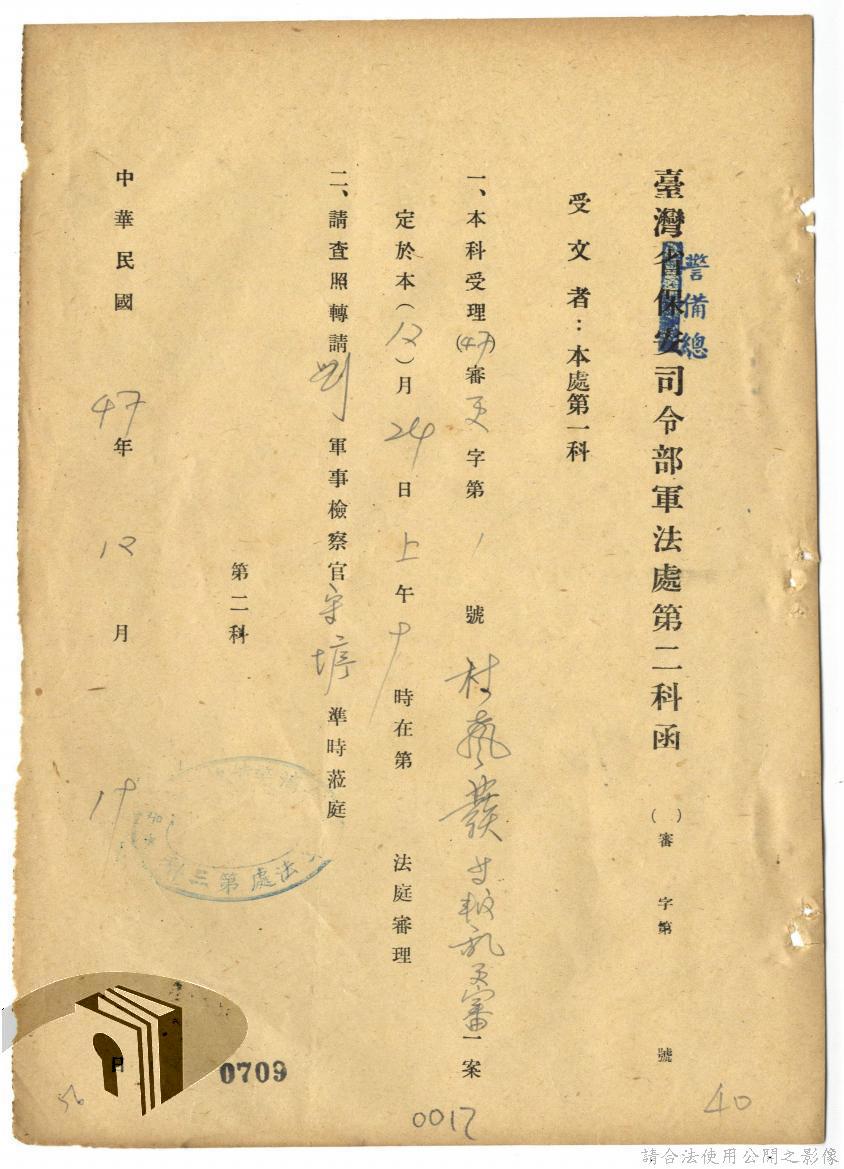 臺灣省保安司令部軍法處第二科函
警備總
（ ）審 字第 號
受文者：本處第一科
一、本科受理(47)審更字第1號 林藝發等叛亂更審一案
定於本(12)月24日上午十時在第 法庭審理
二、請查照轉請劉軍事檢察官守 準時蒞庭
第二科
法處第三科
中華民國47年12月1 日
0709
0017
40
56
請合法使用公開之影像